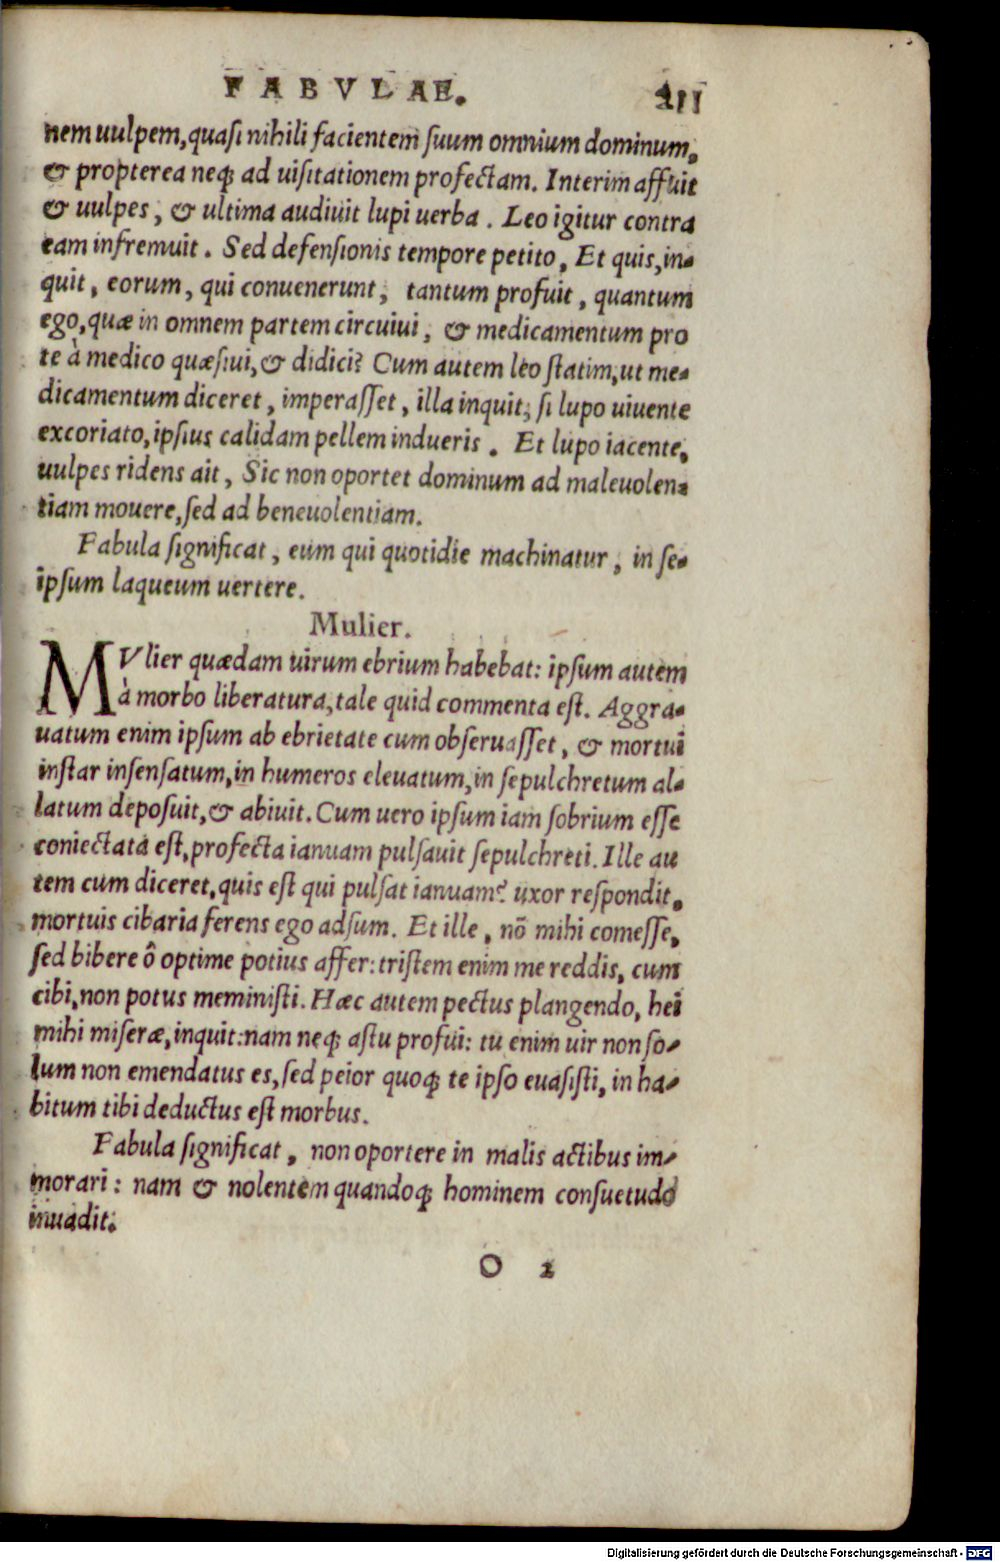 FABVLAE. 211
nem uulpem, quasi nihili facientem suum omnium dominum,
& propterea neq; ad uisitationem profectam. Interim affuit
& uulpes, & ultima audiuit lupi uerba. Leo igitur contra
eam infremuit. Sed defensionis tempore petito, Et quis, in-
quit, eorum, qui conuenerunt, tantum profuit, quantum
ego, quæ in omnem partem circuiui, & medicamentum pro
te à medico quæsiui, & didici? Cum autem leo statim, ut me-
dicamentum diceret, imperasset, illa inquit; si lupo uiuente
excoriato, ipsius calidam pellem indueris. Et lupo iacente,
uulpes ridens ait, Sic non oportet dominum ad maleuolen-
tiam mouere, sed ad beneuolentiam.
Fabula significat, eum qui quotidie machinatur, in se-
ipsum laqueum uertere.
Mulier.
MVlier quædam uirum ebrium habebat: ipsum autem
à morbo liberatura, tale quid commenta est. Aggra-
uatum enim ipsum ab ebrietate cum obseruasset, & mortui
instar insensatum, in humeros eleuatum, in sepulchretum al-
latum deposuit, & abiuit. Cum uero ipsum iam sobrium esse
coniectata est, profecta ianuam pulsauit sepulchreti. Ille au
tem cum diceret, quis est qui pulsat ianuam? uxor respondit,
mortuis cibaria ferens ego adsum. Et ille, nō mihi comesse,
sed bibere ô optime potius affer: tristem enim me reddis, cum
cibi, non potus meministi. Hæc autem pectus plangendo, hei
mihi miseræ, inquit: nam neq; astu profui: tu enim uir non so-
lum non emendatus es, sed peior quoq; te ipso euasisti, in ha-
bitum tibi deductus est morbus.
Fabula significat, non oportere in malis actibus im-
morari: nam & nolentem quandoq; hominem consuetudo
inuadit.
O 2
Digitalisierung gefördert durch die Deutsche Forschungsgemeinschaft - DFG